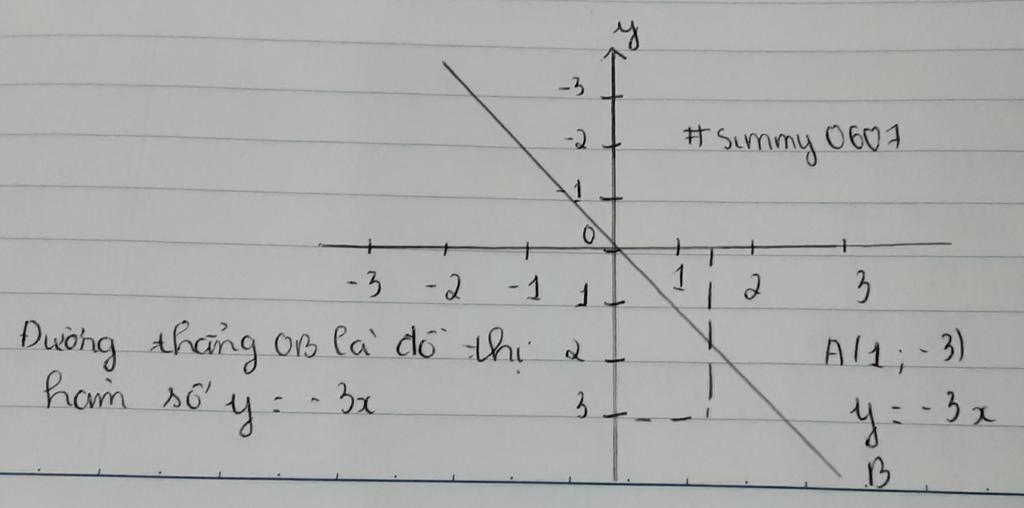 y
-3
-2
#summy 0607
-1
0
-3 -2 -1 1 2 3
1
Đường thẳng OB là đồ thị 2 A(1; -3)
hàm số y = -3x 3 y = -3x
B